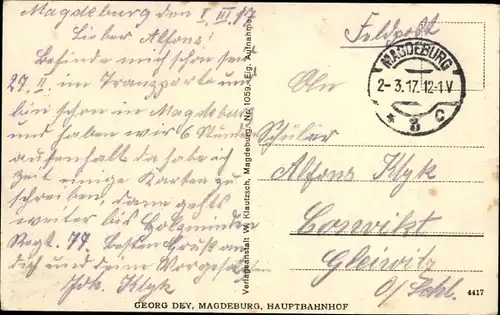 Magdeburg den 1. III. 17
Lieber Alfons!
Befinde mich schon seit
27. II. im Transporte und
bin schon in Magdeburg
und haben wir 6 Stunden
aufenthalt da habe ich
Zeit einige Karten zu
schreiben, dann gehts
weiter bis Holzminden
Regt. 77. Besten Gruß an
dich und deine Vorgesetzten
Joh. Klyk
Verlagsanstalt W. Klautzsch, Magdeburg. Nr. 1059. Eig. Aufnahme.
Feldpost
MAGDEBURG
2-3.17.12-1V
* 8 c
An
Schüler
Alfons Klyk
Gleiwitz
O/Schl.
4417
GEORG DEY, MAGDEBURG, HAUPTBAHNHOF